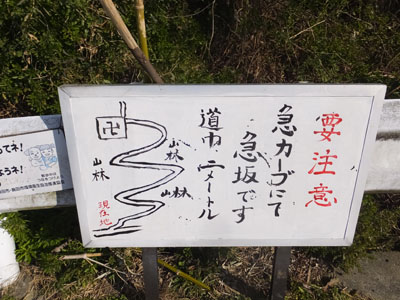 要注意
急カーブにて
急坂です
道巾 二メートル
卍
山林
山林
山林
現在地
ってネ!
ようネ!